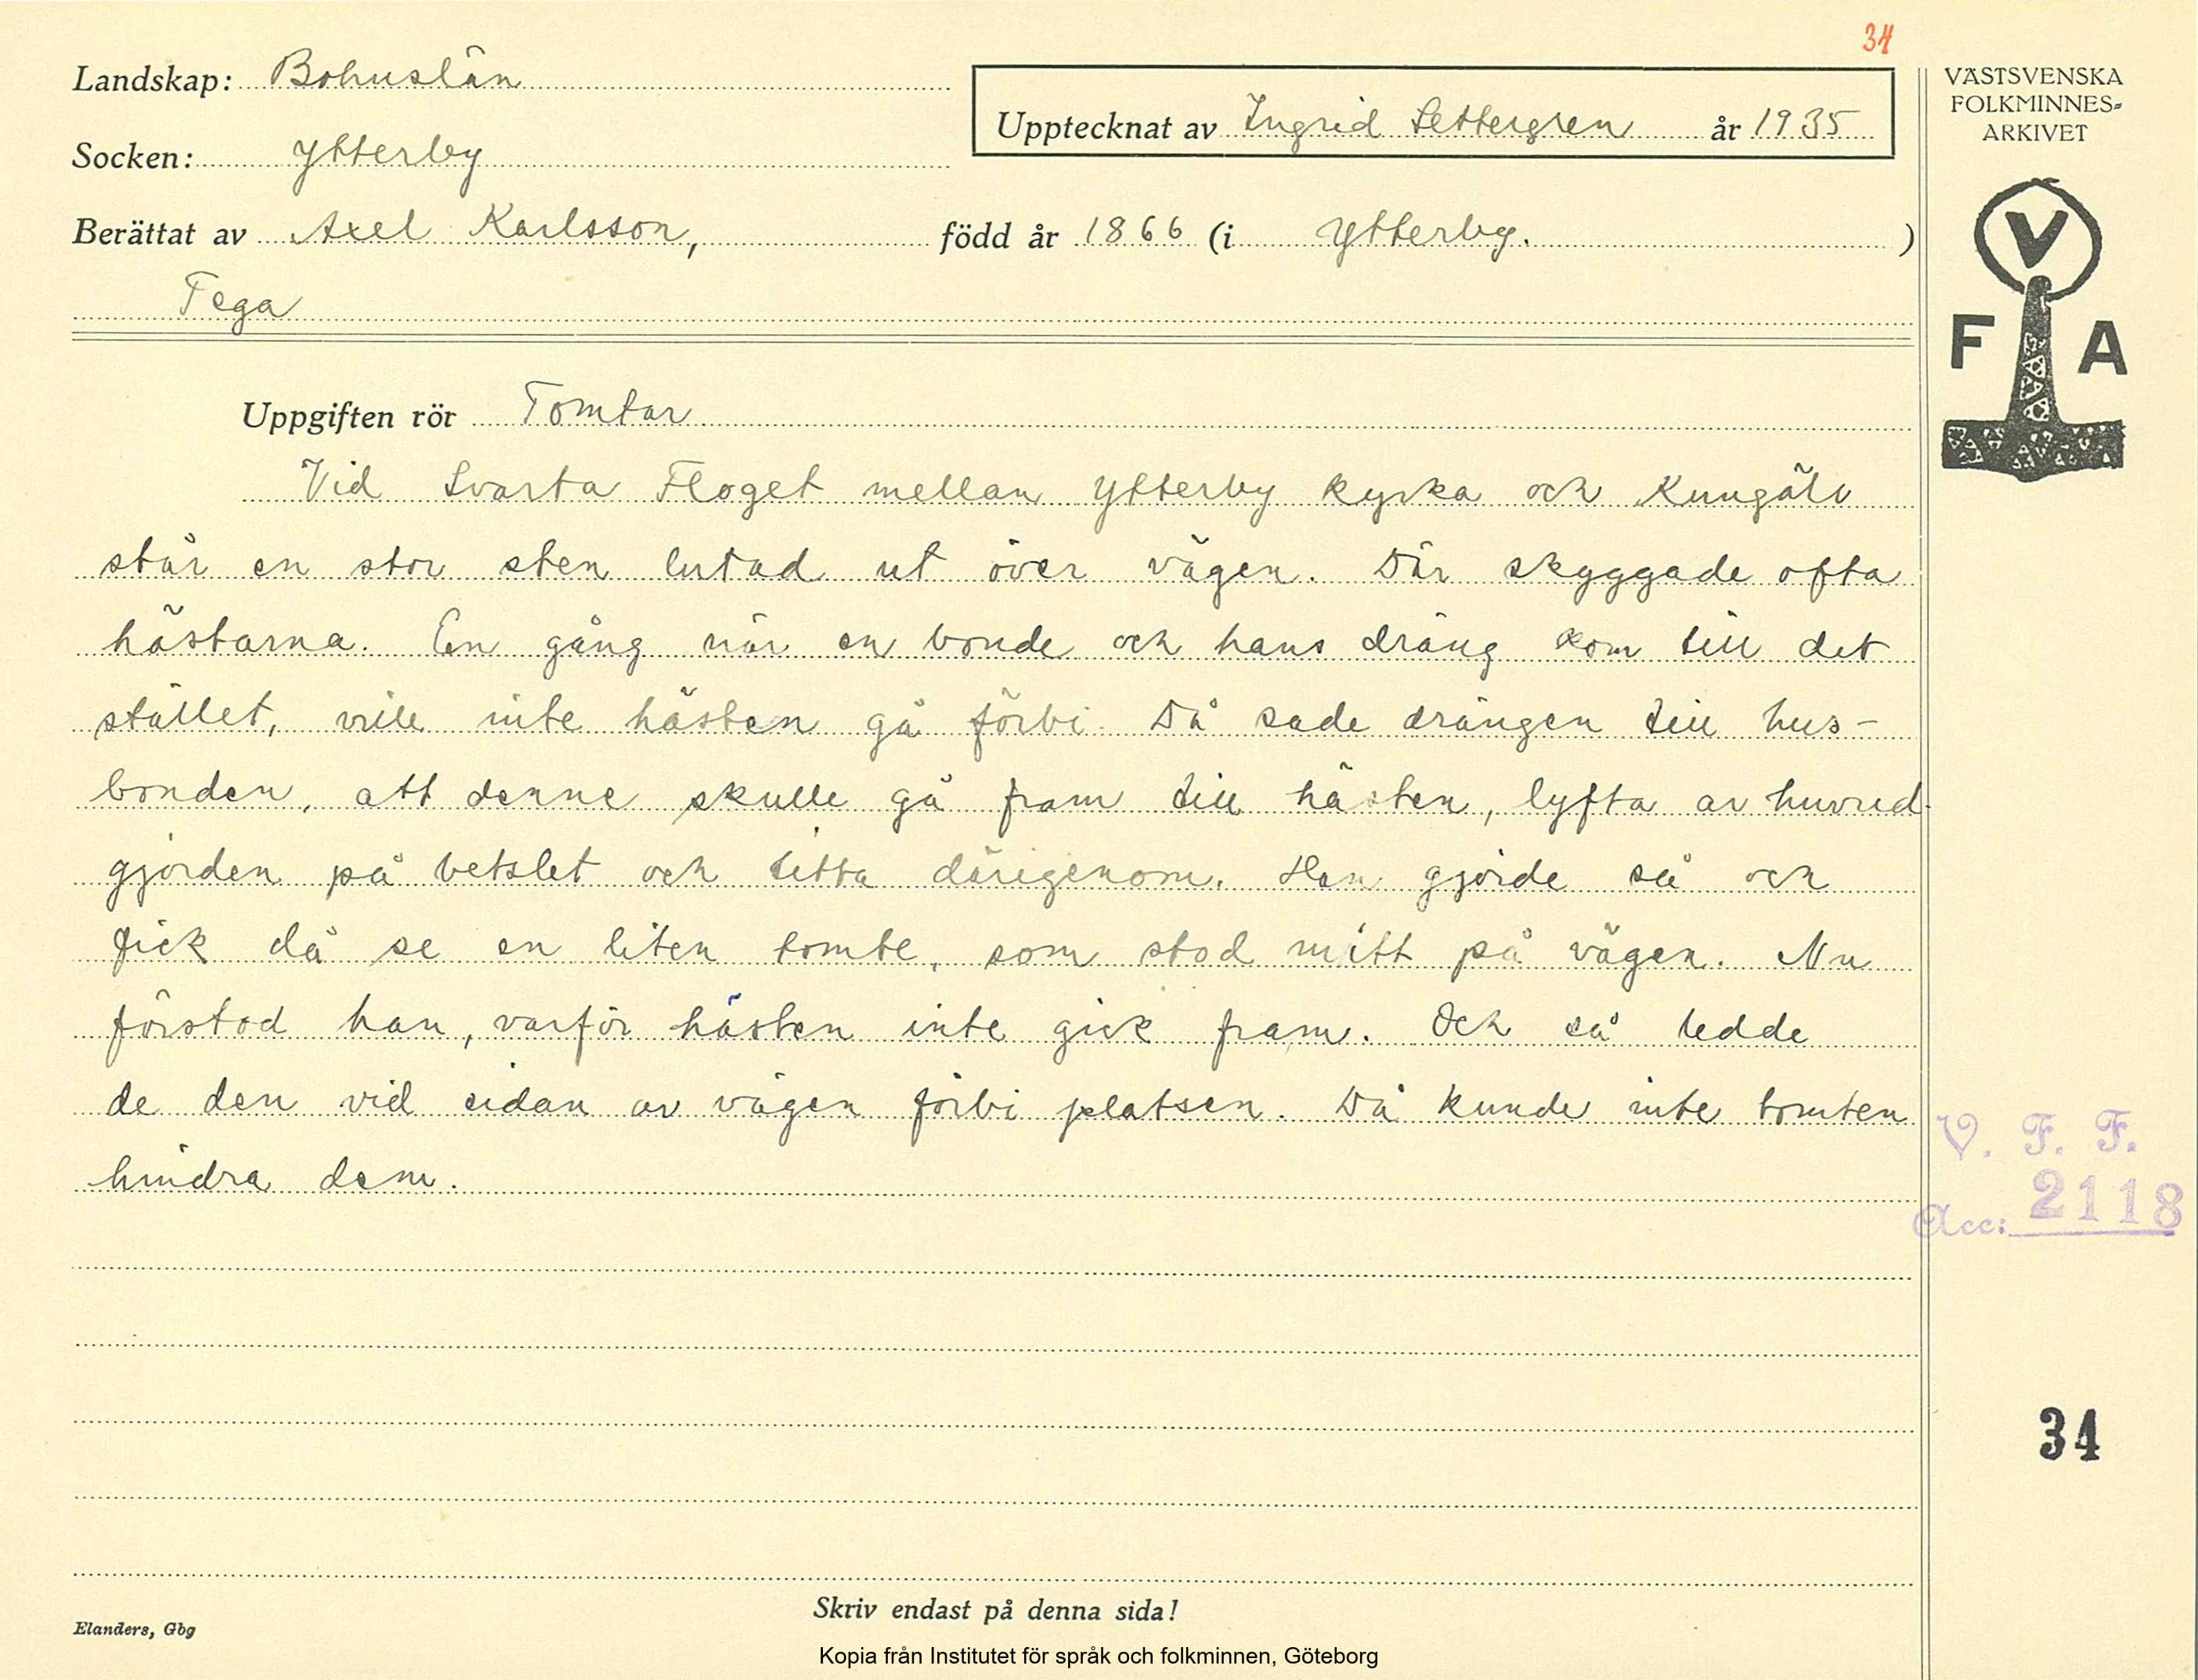 34
Landskap: Bohuslän
Socken: Ytterby
Upptecknat av Ingrid Settergren år 1935
Berättat av Axel Karlsson, född år 1866 (i Ytterby. )
Tega
VÄSTSVENSKA
FOLKMINNES-
ARKIVET
V
F A
Uppgiften rör Tomtar
Vid Svarta Floget mellan Ytterby kyrka och Kungälv
står en stor sten lutad ut över vägen. Där skyggade ofta
hästarna. En gång när en bonde och hans dräng kom till det
stället, ville inte hästen gå förbi. Då sade drängen till hus-
bonden, att denne skulle gå fram till hästen, lyfta av huvud-
gjorden på betslet och titta därigenom. Han gjorde så och
fick då se en liten tomte, som stod mitt på vägen. Nu
förstod han, varför hästen inte gick fram. Och så ledde
de den vid sidan av vägen förbi platsen. Då kunde inte tomten
hindra dem.
V. F. F.
Acc: 2118
34
Skriv endast på denna sida!
Elanders, Gbg
Kopia från Institutet för språk och folkminnen, Göteborg